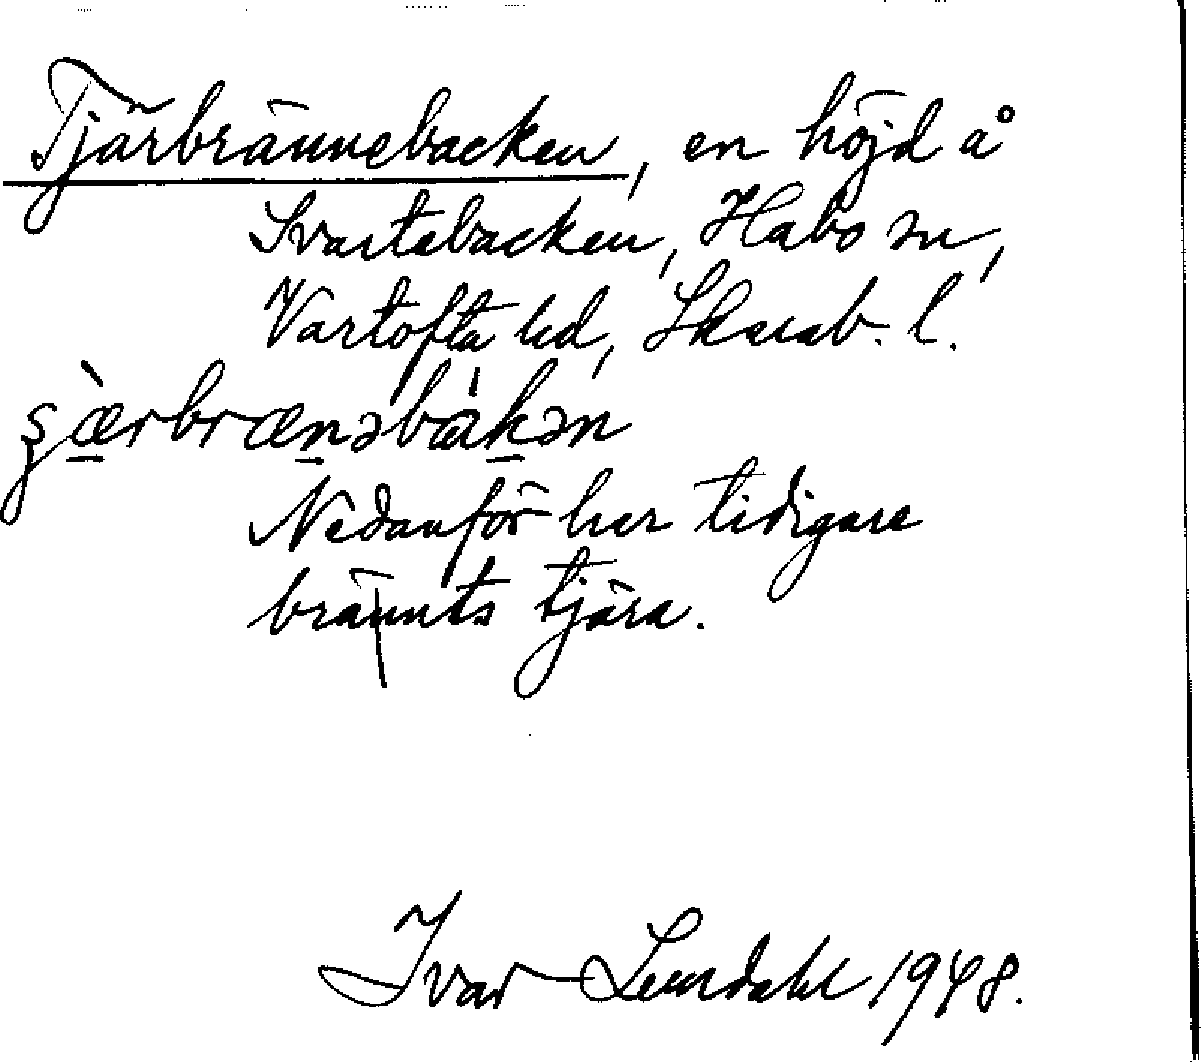 Tjärbrännebacken, en höjd å
Svartebacken, Habo sn,
Vartofta hd, Skarab. l.
ʂæ̀rbrænəbàkən
Nedanför har tidigare
brännts tjära.
Ivar Lundahl 1948.